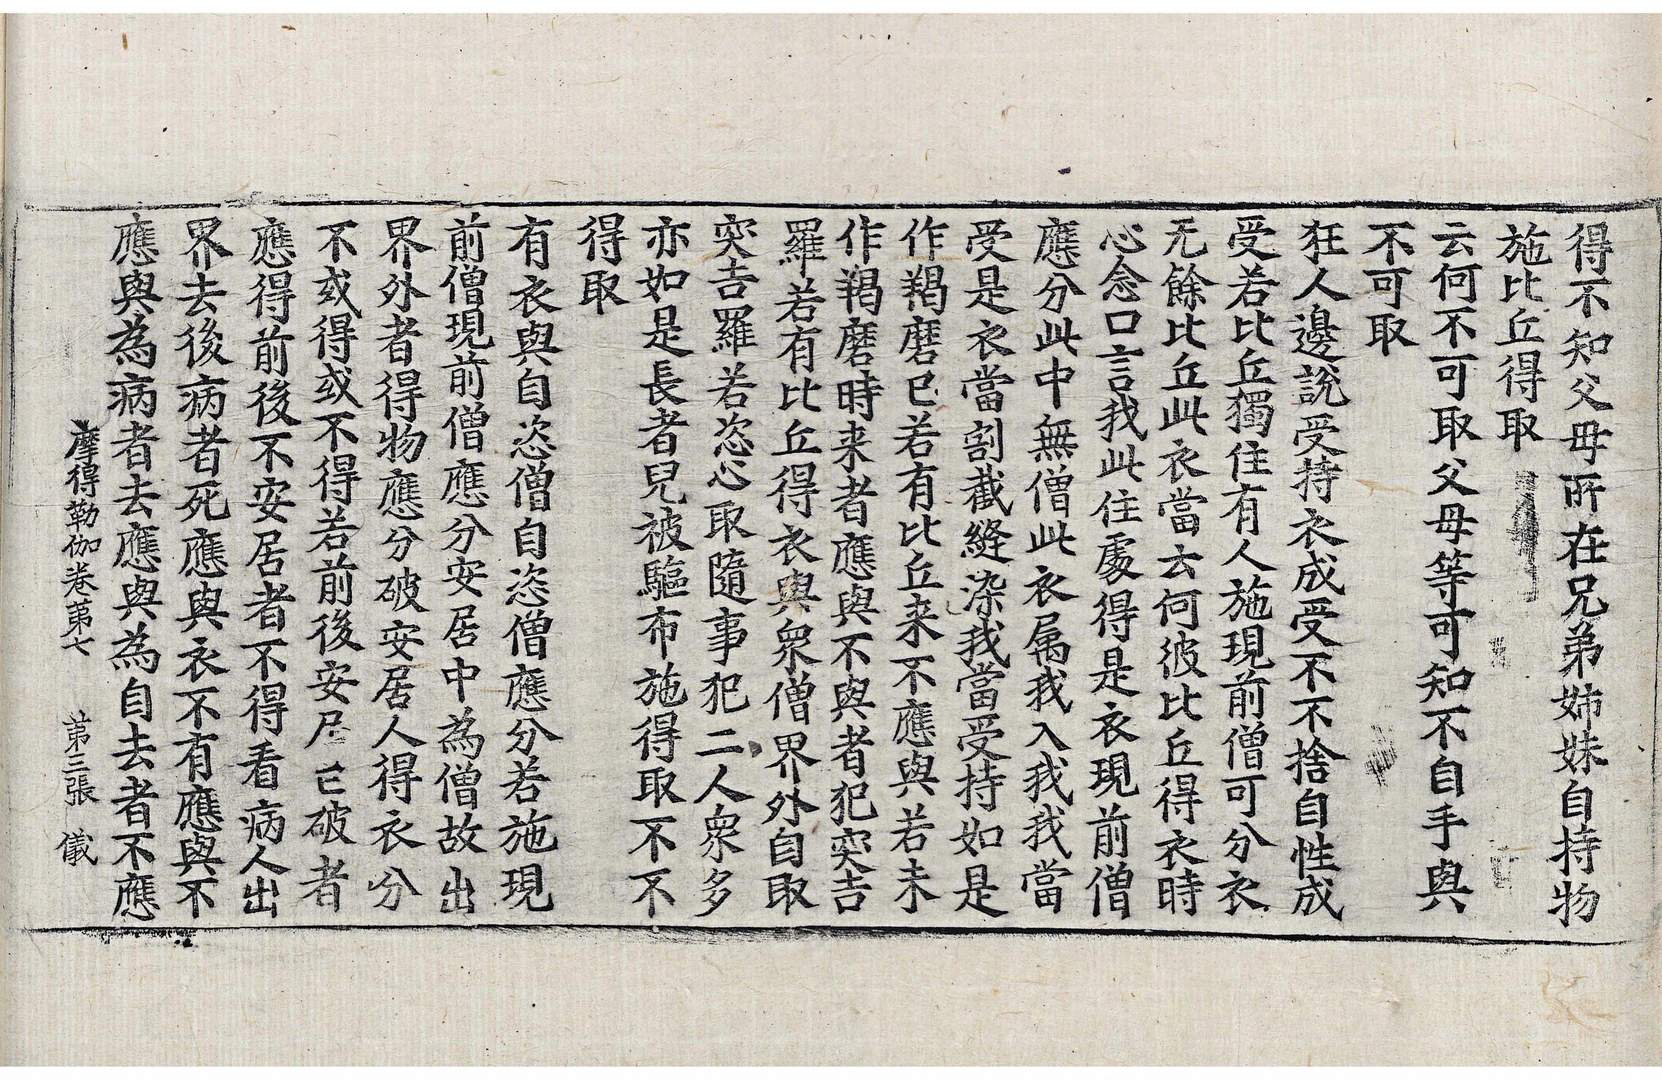 得不知父母所在兄弟姊妹自持物
施比丘得取
云何不可取父母等可知不自手與
不可取
狂人邊說受持衣成受不不捨自性成
受若比丘獨住有人施現前僧可分衣
无餘比丘此衣當去何彼比丘得衣時
心念口言我此住處得是衣現前僧
應分此中無僧此衣属我入我我當
受是衣當割截縫染我當受持如是
作羯磨已若有比丘来不應與若未
作羯磨時来者應與不與者犯突吉
羅若有比丘得衣與衆僧界外自取
突吉羅若恣心取隨事犯二人衆多
亦如是長者兒被驅布施得取不不
得取
有衣與自恣僧自恣僧應分若施現
前僧現前僧應分安居中為僧故出
界外者得物應分破安居人得衣分
不或得或不得若前後安居已破者
應得前後不安居者不得看病人出
界去後病者死應與衣不有應與不
應與為病者去應與為自去者不應
摩得勒伽卷第七 第三張 儀